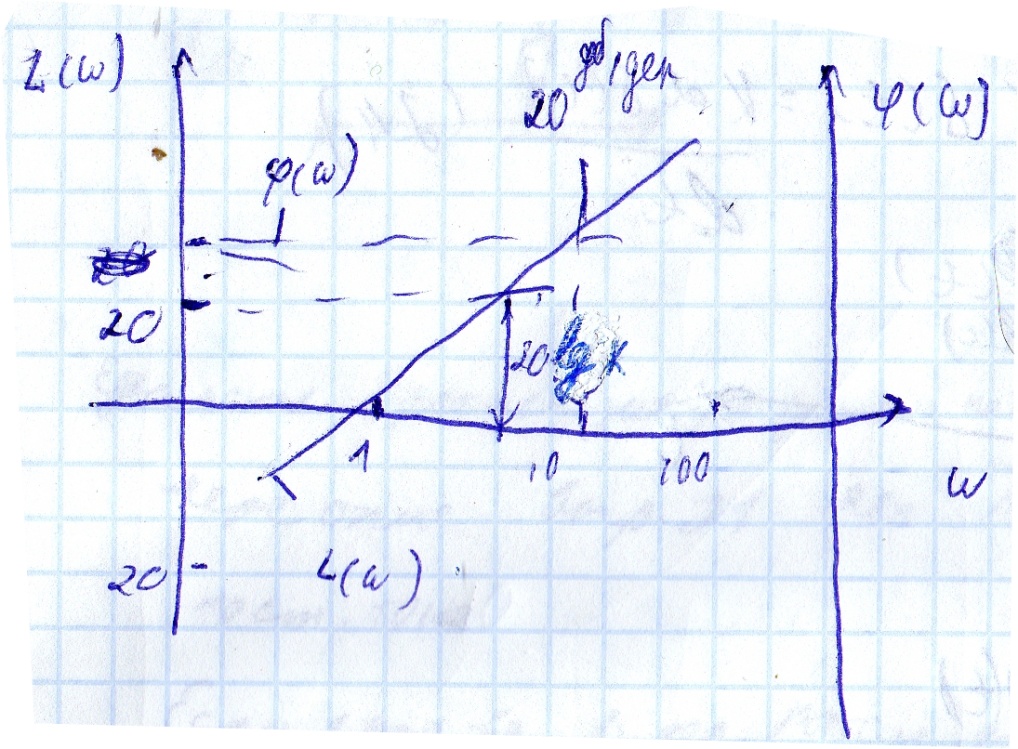 L(ω)
20 дб/дек
φ(ω)
φ(ω)
20
20 lg k
1
10
100
ω
20
L(ω)